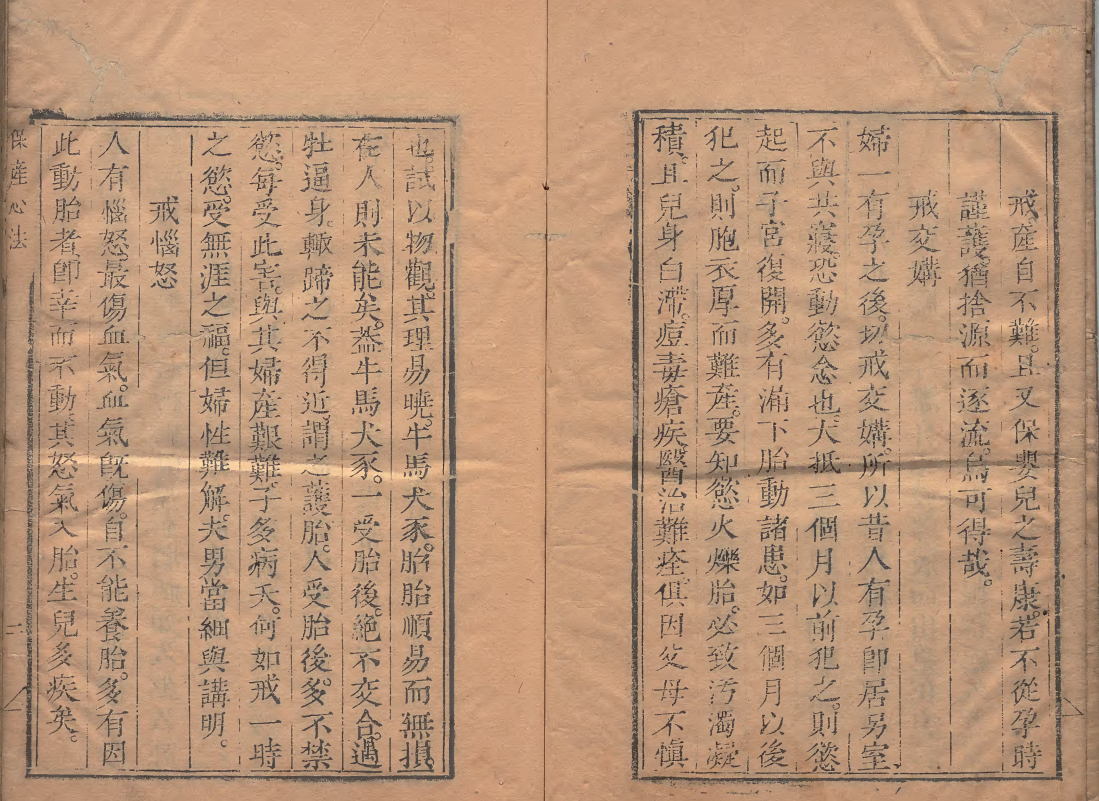 戒產自不難。且又保嬰兒之壽康。若不從孕時
謹護。猶捨源而逐流。烏可得哉。
戒交媾
婦一有孕之後。切戒交媾。所以昔人有孕卽居另室
不與共寢。恐動慾念也。大抵三個月以前犯之。則慾
起而子宮復開。多有漏下胎動諸患。如三個月以後
犯之。則胞衣厚而難產。要知慾火爍胎。必致汚濁凝
積。且兒身白滯。痘毒瘡疾。醫治難痊。俱因父母不愼
也。試以物觀。其理易曉。牛馬犬豕。胎胎順易而無損
在人則未能矣。蓋牛馬犬豕。一受胎後。絕不交合。遇
牡逼身。輙蹄之不得近。謂之護胎。人受胎後。多不禁
慾。每受此害。與其婦產艱難。子多病夭。何如戒一時
之慾。受無涯之福。但婦性難解。夫男當細與講明。
戒惱怒
人有惱怒。最傷血氣。血氣旣傷。自不能養胎。多有因
此動胎者。卽幸而不動。其怒氣入胎。生兒多疾矣。
保產心法
二